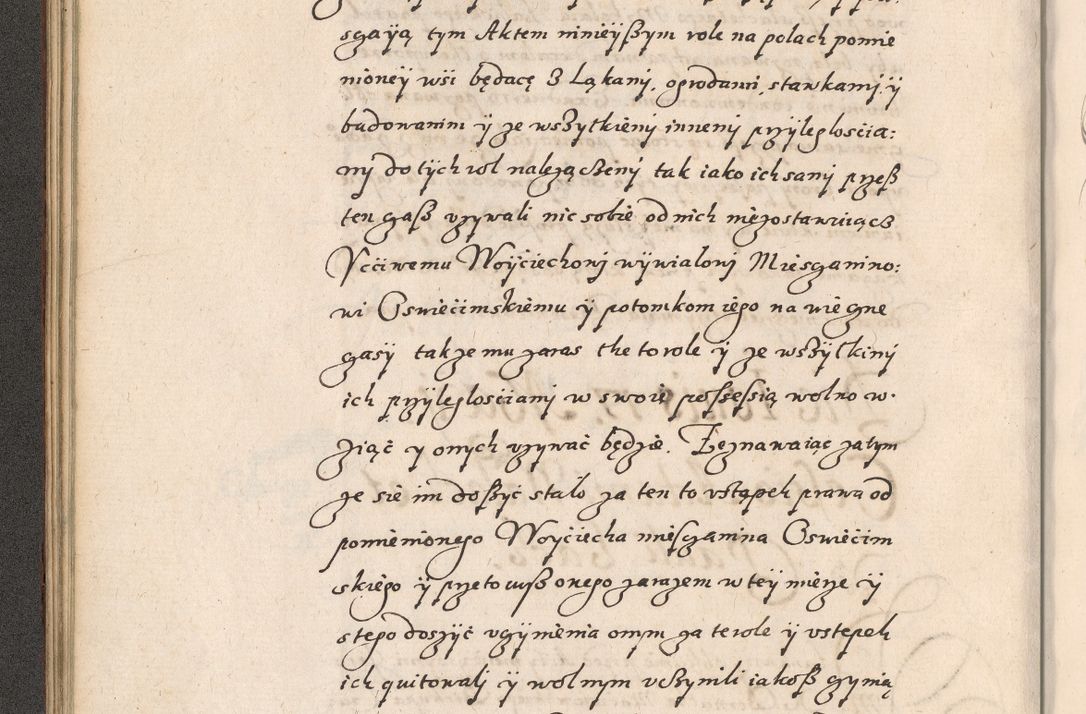 sgaÿą tym Aktem ninieÿßym role na polach pomie
nioneÿ wśi będacę z Ląkami, ogrodami, stawkami, ÿ
budowanim ÿ ze wszytkiemi innemi przÿleglościa:
mi do tÿch rol należączemi tak iako ich sami przeß
ten czaß vzywali nic sobie od nich niezostawuiącz
Vcciwemu Woÿciechowi wÿwialowi Miesczanino:
wi Oswiecimskiemu ÿ potomkom iego na wieczne
czasÿ także mu zaras the to role ÿ ze wszÿtkimi
ich przÿleglościami w swoię possessią wolno w.
ziąć y onych vzywać będzie. Zeznawaiąc zatym
że się im doßÿć stalo za ten to vstąpek prawa od
pomienionego Woyciecha miesczanina Oswiecim
skiego ÿ przeto wß onego zarazem w teÿ mierze ÿ
stego doszÿć vczÿnienia onym za te role ÿ vstepek
ich quitowali ÿ wolnym vczynili iakoß czynią